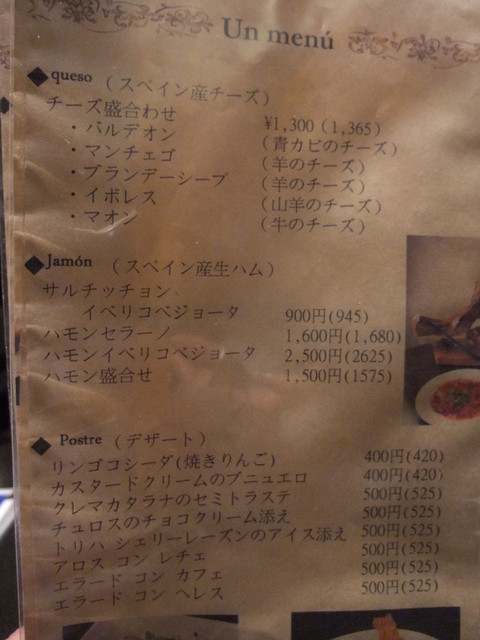 Un menú
◆queso (スペイン産チーズ)
チーズ盛合わせ ¥1,300 (1,365)
・バルデオン (青カビのチーズ)
・マンチェゴ (羊のチーズ)
・ブランデーシープ (羊のチーズ)
・イボレス (山羊のチーズ)
・マオン (牛のチーズ)
◆Jamón (スペイン産生ハム)
サルチッチョン
イベリコベジョータ 900円(945)
ハモンセラーノ 1,600円(1,680)
ハモンイベリコベジョータ 2,500円(2625)
ハモン盛合せ 1,500円(1575)
◆Postre (デザート)
リンゴコシーダ(焼きりんご) 400円(420)
カスタードクリームのブニュエロ 400円(420)
クレマカタラナのセミトラステ 500円(525)
チュロスのチョコクリーム添え 500円(525)
トリハ シェリーレーズンのアイス添え 500円(525)
アロス コン レチェ 500円(525)
エラード コン カフェ 500円(525)
エラード コン ヘレス 500円(525)